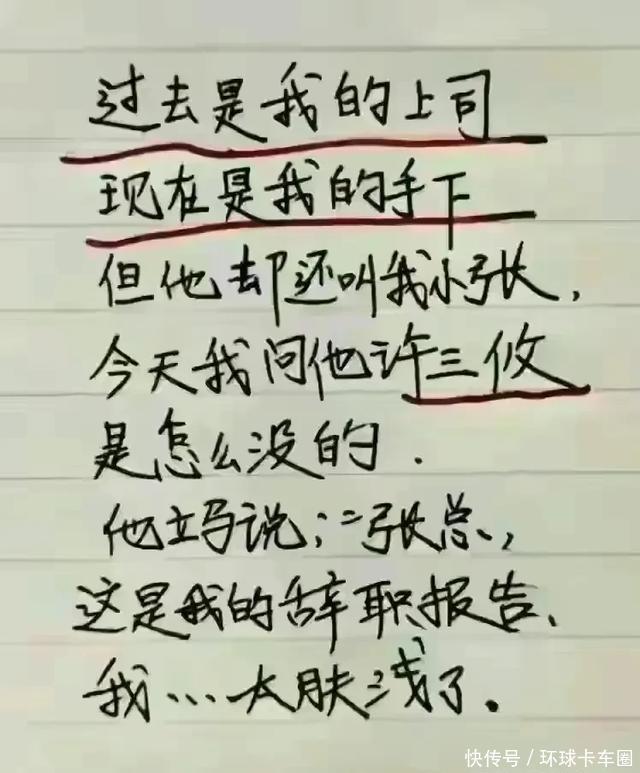 过去是我的上司
现在是我的手下
但他却还叫我小张,
今天我问他许三攸
是怎么没的.
他立马说:"张总,
这是我的辞职报告、
我...太肤浅了。
快传号/环球卡车圈